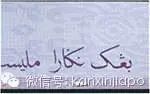 بڠک نݢارا مليس
微信号: kanxinjiapo